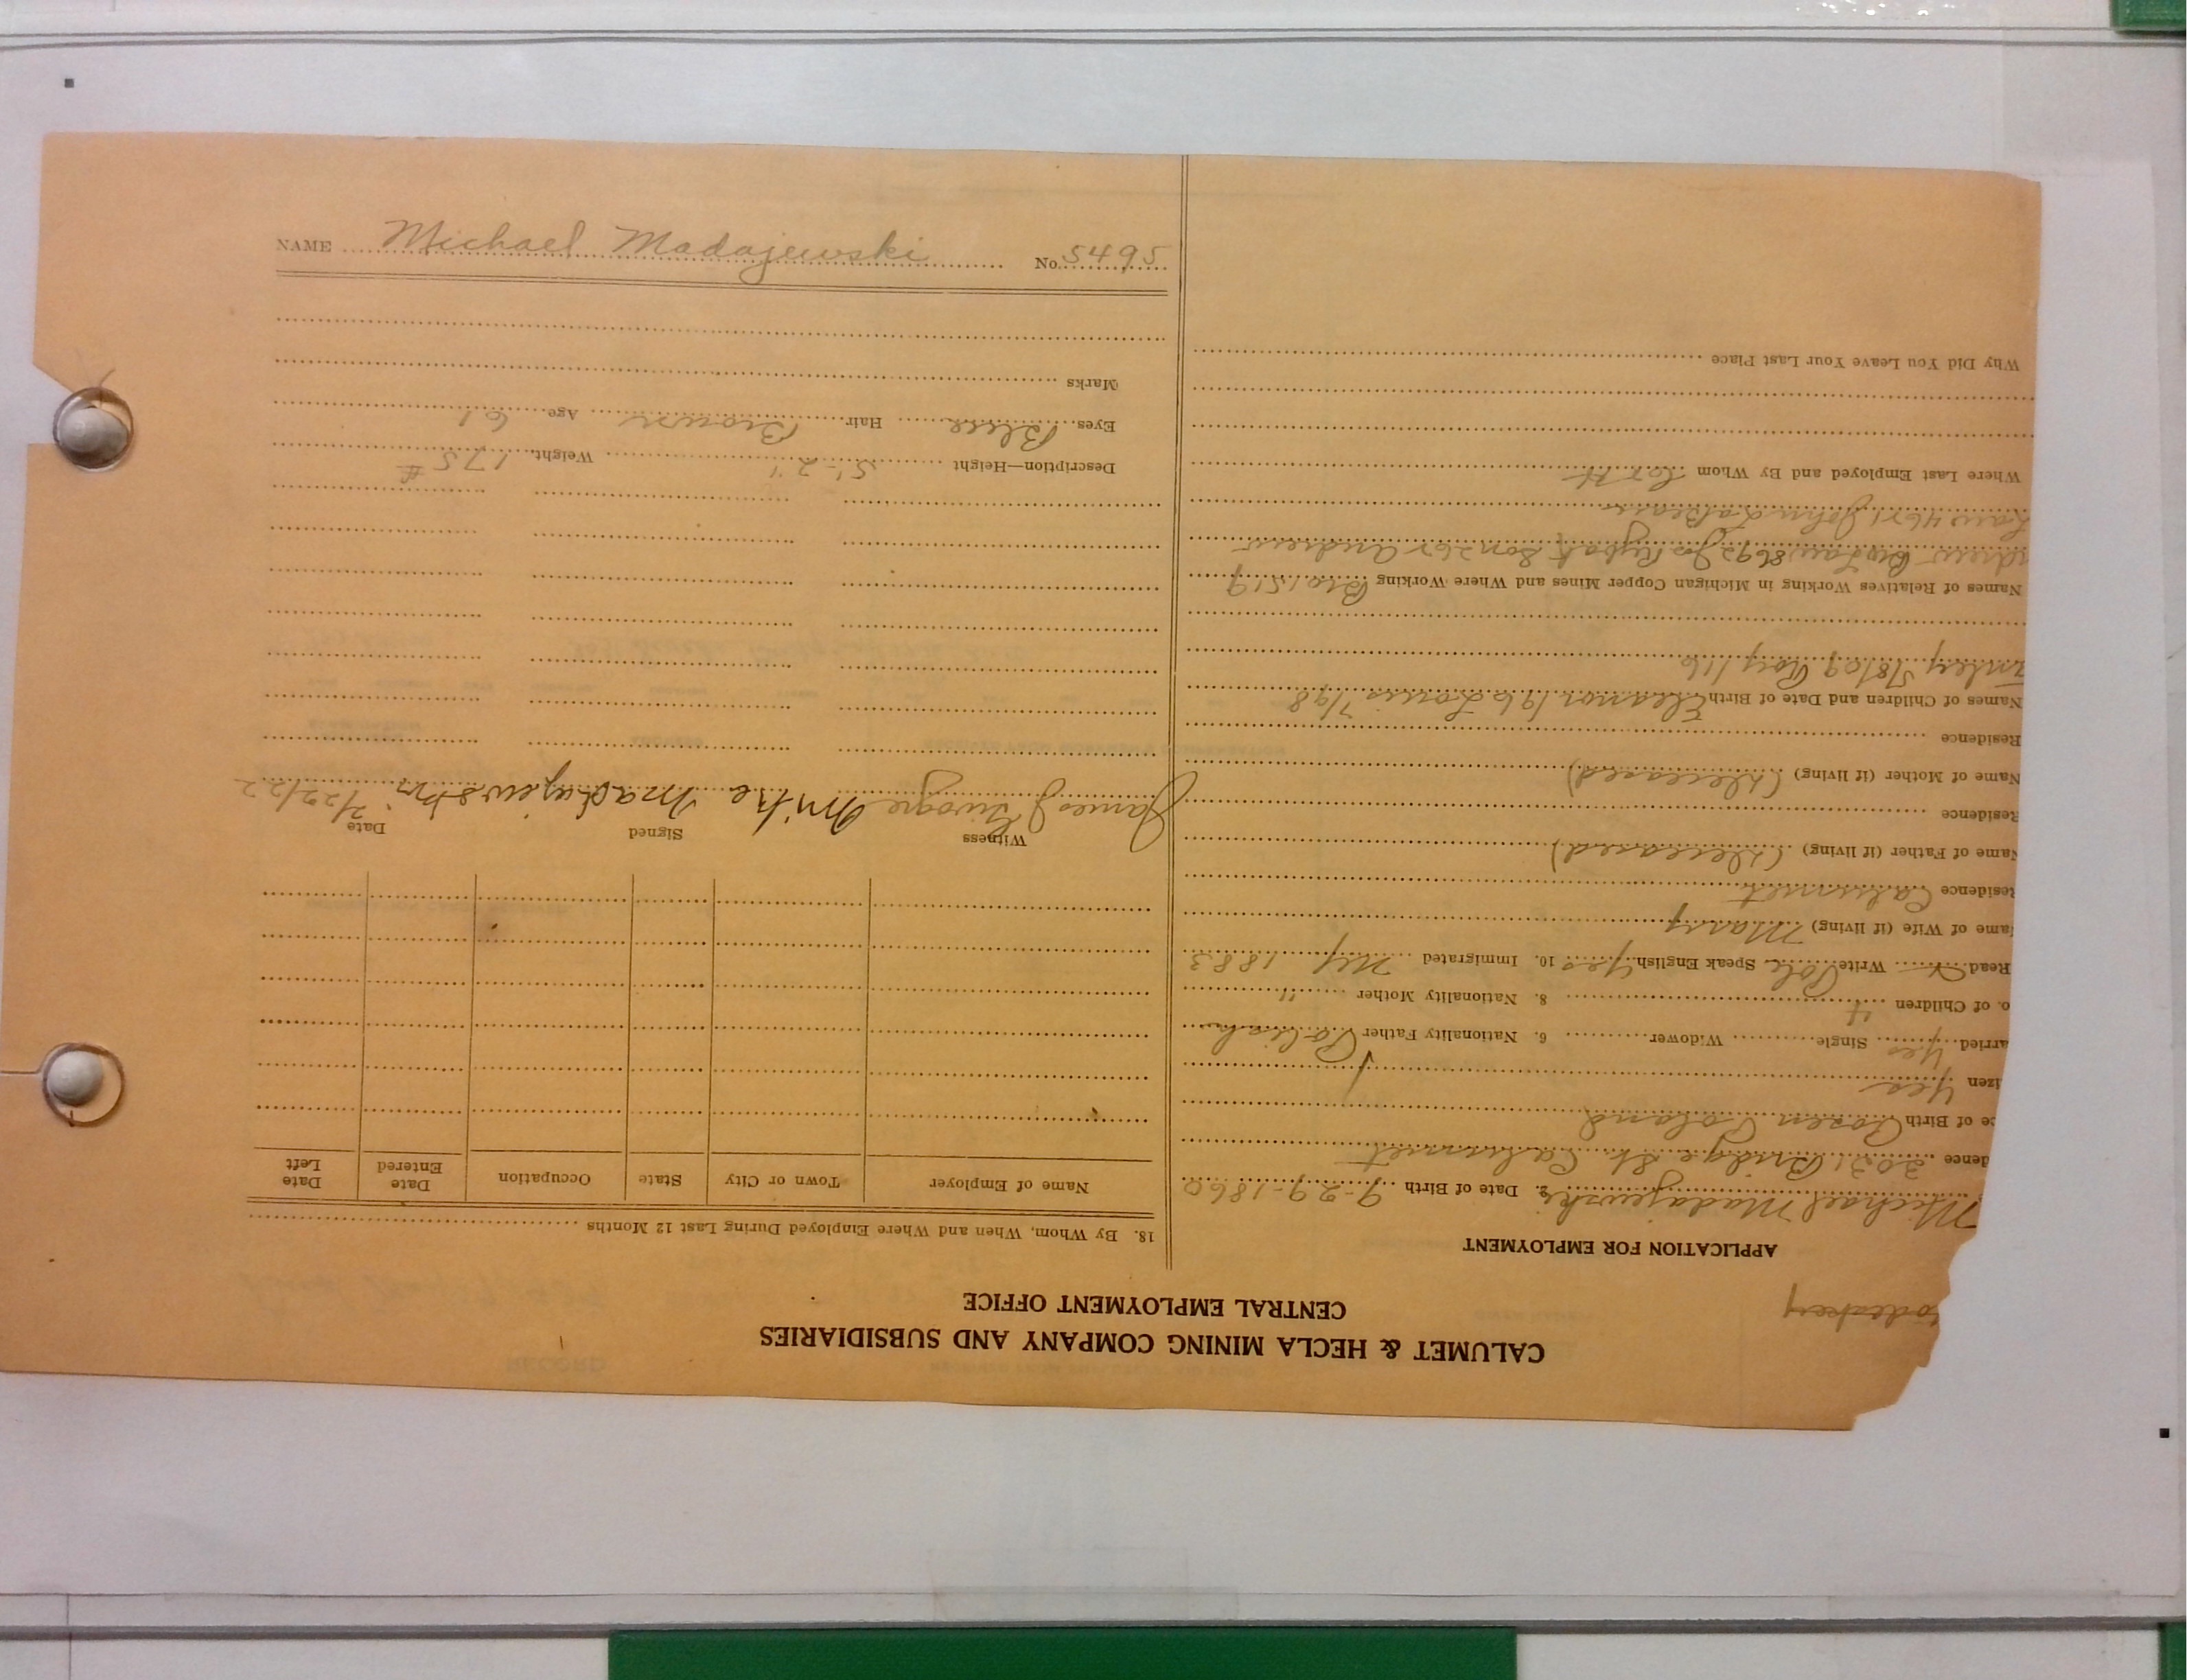 CALUMET & HECLA MINING COMPANY AND SUBSIDIARIES
CENTRAL EMPLOYMENT OFFICE
APPLICATION FOR EMPLOYMENT
Michael Madajewski 2. Date of Birth 9-29-1860
dence 3021 Bridge St. Calumet
ce of Birth Posen Poland
izen Yes
arried Yes Single Widower 6. Nationality Father Polish
o. of Children 4 8. Nationality Mother "
Read Write Pole Speak English yes 10. Immigrated 1883
ame of Wife (if living) Mary
Residence Calumet
Name of Father (if living) (Deceased)
Residence
Name of Mother (if living) (Deceased)
Residence
Names of Children and Date of Birth Eleanor 1906 Louis 7/98
5/8/09 Roy 1/16
Names of Relatives Working in Michigan Copper Mines and Where Working Bro 1519
drew Bro Law 8692 Jos Rybak Son 267 Andrew
Law 4671 John LaBeau
Where Last Employed and By Whom C & H
Why Did You Leave Your Last Place
18. By Whom, When and Where Employed During Last 12 Months
Name of Employer Town or City State Occupation Date Entered Date Left
Witness Signed Date
James J Mike Madajewski 7/29/22
Description—Height 5'-2" Weight 175 #
Eyes Blue Hair Brown Age 61
Marks
NAME Michael Madajewski No. 5495